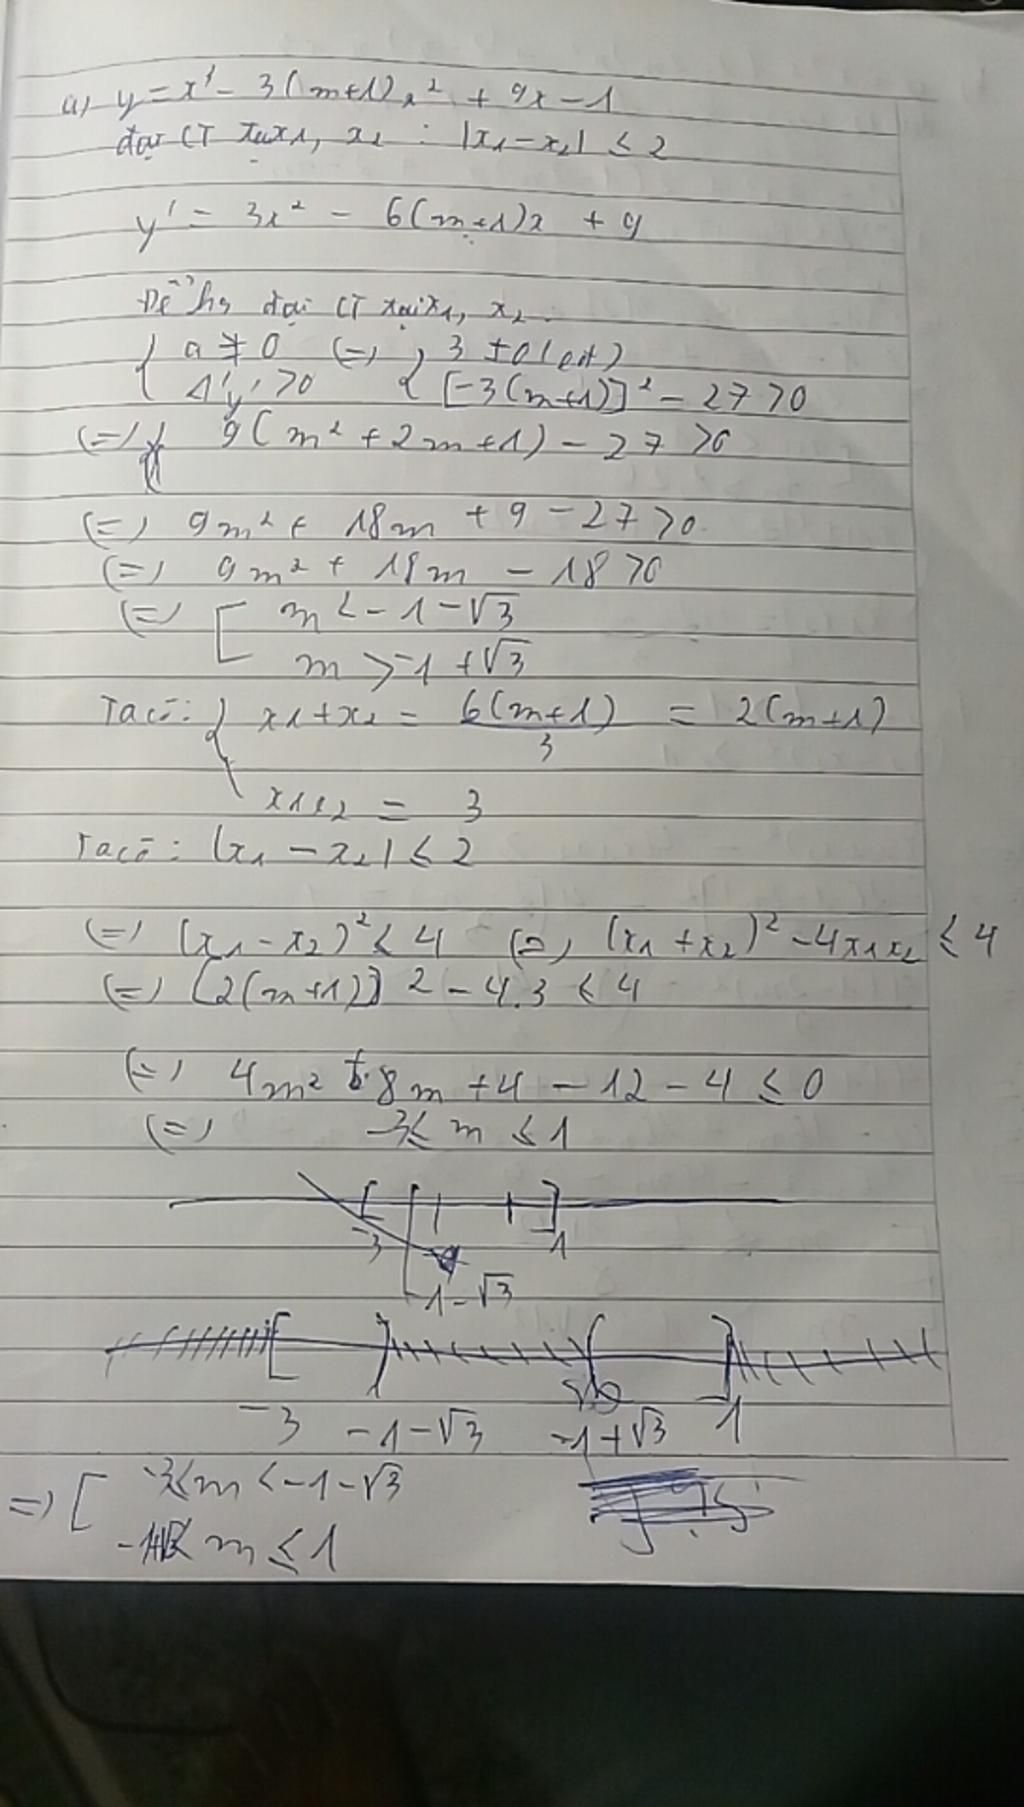 a) y = x³ - 3(m+1)x² + 9x - 1
đạt CT tại x1, x2 : |x1 - x2| ≤ 2
y' = 3x² - 6(m+1)x + 9
Để hs đạt CT tại x1, x2
{ a ≠ 0 (=) { 3 ≠ 0 (lđ)
Δ'y' > 0 [-3(m+1)]² - 27 > 0
(=) 9(m² + 2m + 1) - 27 > 0
(=) 9m² + 18m + 9 - 27 > 0
(=) 9m² + 18m - 18 > 0
(=) [ m < -1 - √3
m > -1 + √3
Ta có: { x1 + x2 = 6(m+1)/3 = 2(m+1)
x1x2 = 3
Ta có: |x1 - x2| ≤ 2
(=) (x1 - x2)² ≤ 4 (=) (x1 + x2)² - 4x1x2 ≤ 4
(=) [2(m+1)]2 - 4.3 ≤ 4
(=) 4m² + 8m + 4 - 12 - 4 ≤ 0
(=) -3 ≤ m ≤ 1
-3 1
-1 - √3
-3 -1 - √3 -1 + √3 1
=) [ -3 ≤ m < -1 - √3
-1+√3 < m ≤ 1